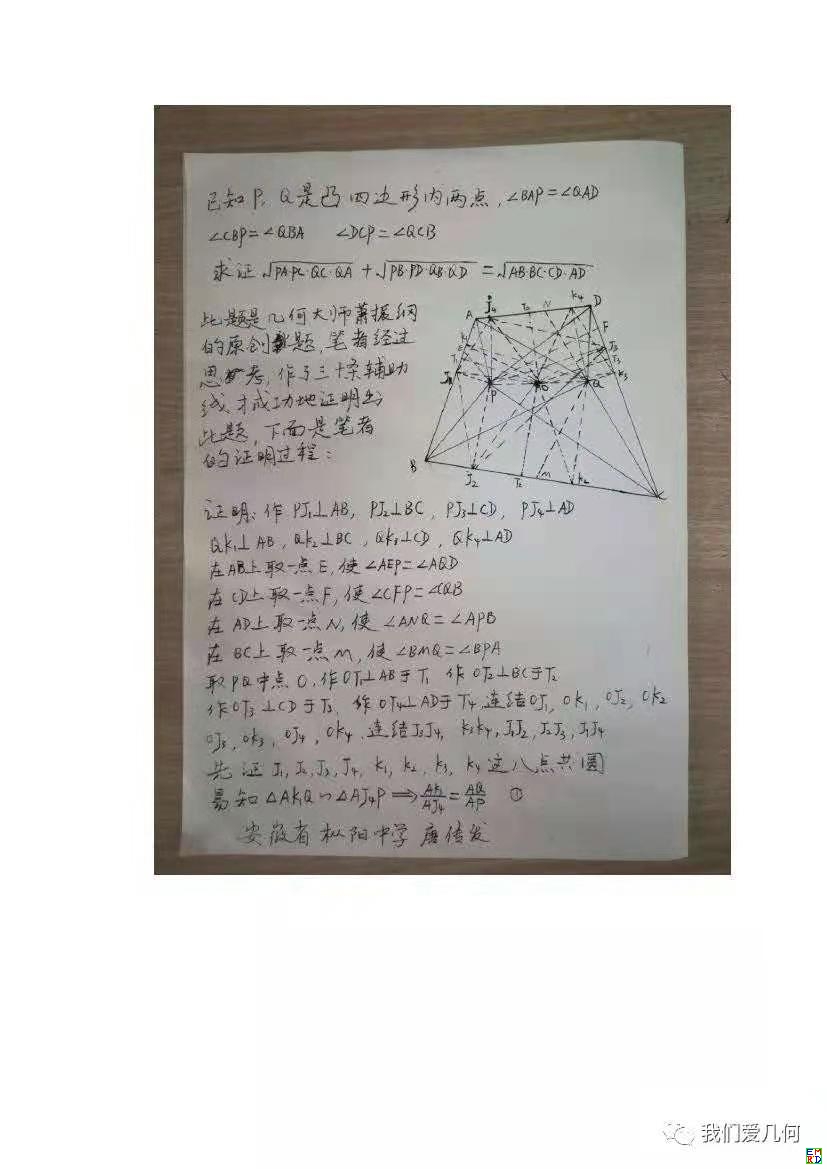 已知P,Q是凸四边形内两点,∠BAP=∠QAD
∠CBP=∠QBA ∠DCP=∠QCB
求证√PA·PC·QC·QA+√PB·PD·QB·QD=√AB·BC·CD·AD
此题是几何大师萧振纲
的原创题,笔者经过
思考,作了三十条辅助
线,才成功地证明出
此题,下面是笔者
的证明过程:
A J4 T4 N K4 D
F
E J3
T1 T3
J1 K3
P O Q
B J2 T2 M K2 C
证明:作PJ1⊥AB,PJ2⊥BC,PJ3⊥CD,PJ4⊥AD
QK1⊥AB,QK2⊥BC,QK3⊥CD,QK4⊥AD
在AB上取一点E,使∠AEP=∠AQD
在CD上取一点F,使∠CFP=∠CQB
在AD上取一点N,使∠ANQ=∠APB
在BC上取一点M,使∠BMQ=∠BPA
取PQ中点O,作OT1⊥AB于T1 作OT2⊥BC于T2
作OT3⊥CD于T3,作OT4⊥AD于T4 连结OJ1,OK1,OJ2,OK2
OJ3,OK3,OJ4,OK4 连结J3J4,K3K4,J1J2,J2J3,J1J4
先证J1,J2,J3,J4,K1,K2,K3,K4这八点共圆
易知△AK1Q∽△AJ4P⟹AK1/AJ4=AQ/AP ①
安徽省枞阳中学 唐传发
我们爱几何